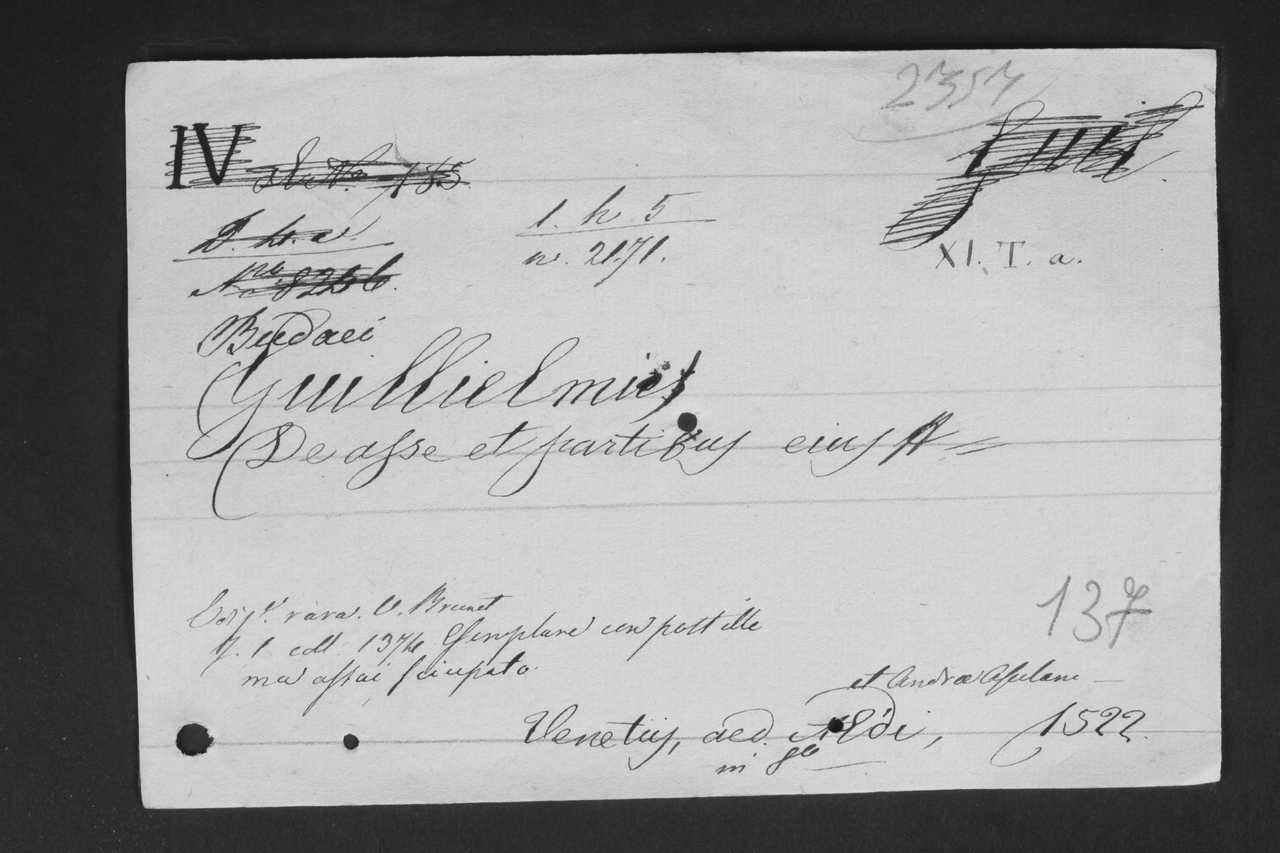 2357
IV
D. H. a.
N.ro 8226.
1. h 5
n. 2171.
XI. T. a.
Budaei
Guillielmi
De asse et partibus eius
Ediz. rara. V. Brunet
T. 1 coll 1374 Esemplare con postille
ma assai sciupato.
137
et Andreae Asulani
Venetiis, aed. Aldi, 1522.
in 8o